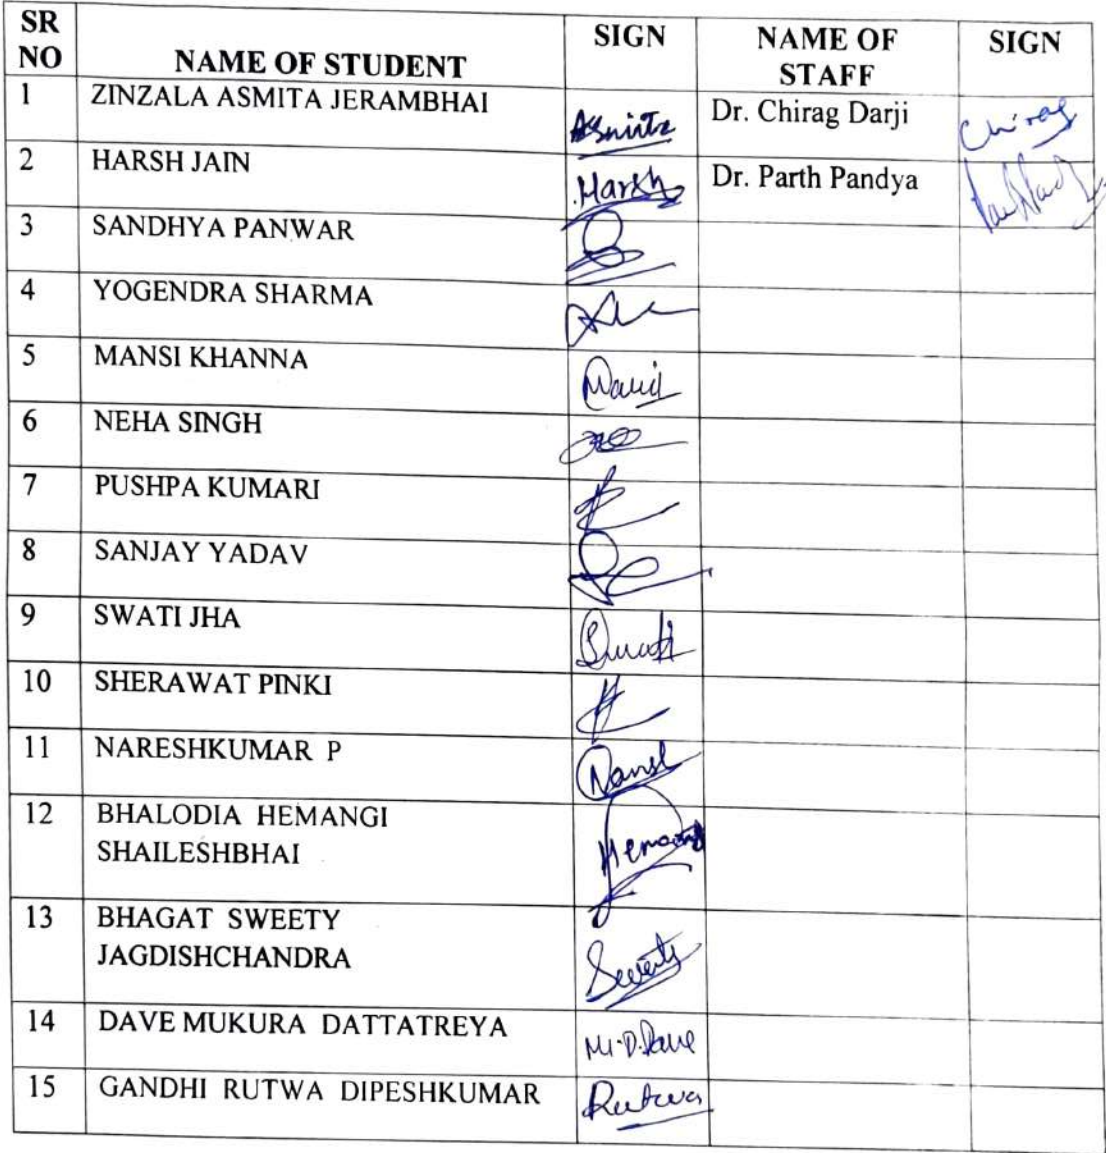 SR NO NAME OF STUDENT SIGN NAME OF STAFF SIGN
1 ZINZALA ASMITA JERAMBHAI Asmita Dr. Chirag Darji Chirag
2 HARSH JAIN Harsh Dr. Parth Pandya
3 SANDHYA PANWAR
4 YOGENDRA SHARMA
5 MANSI KHANNA
6 NEHA SINGH
7 PUSHPA KUMARI
8 SANJAY YADAV
9 SWATI JHA Swati
10 SHERAWAT PINKI
11 NARESHKUMAR P
12 BHALODIA HEMANGI
SHAILESHBHAI
13 BHAGAT SWEETY
JAGDISHCHANDRA Sweety
14 DAVE MUKURA DATTATREYA M.D.Dave
15 GANDHI RUTWA DIPESHKUMAR Rutwa